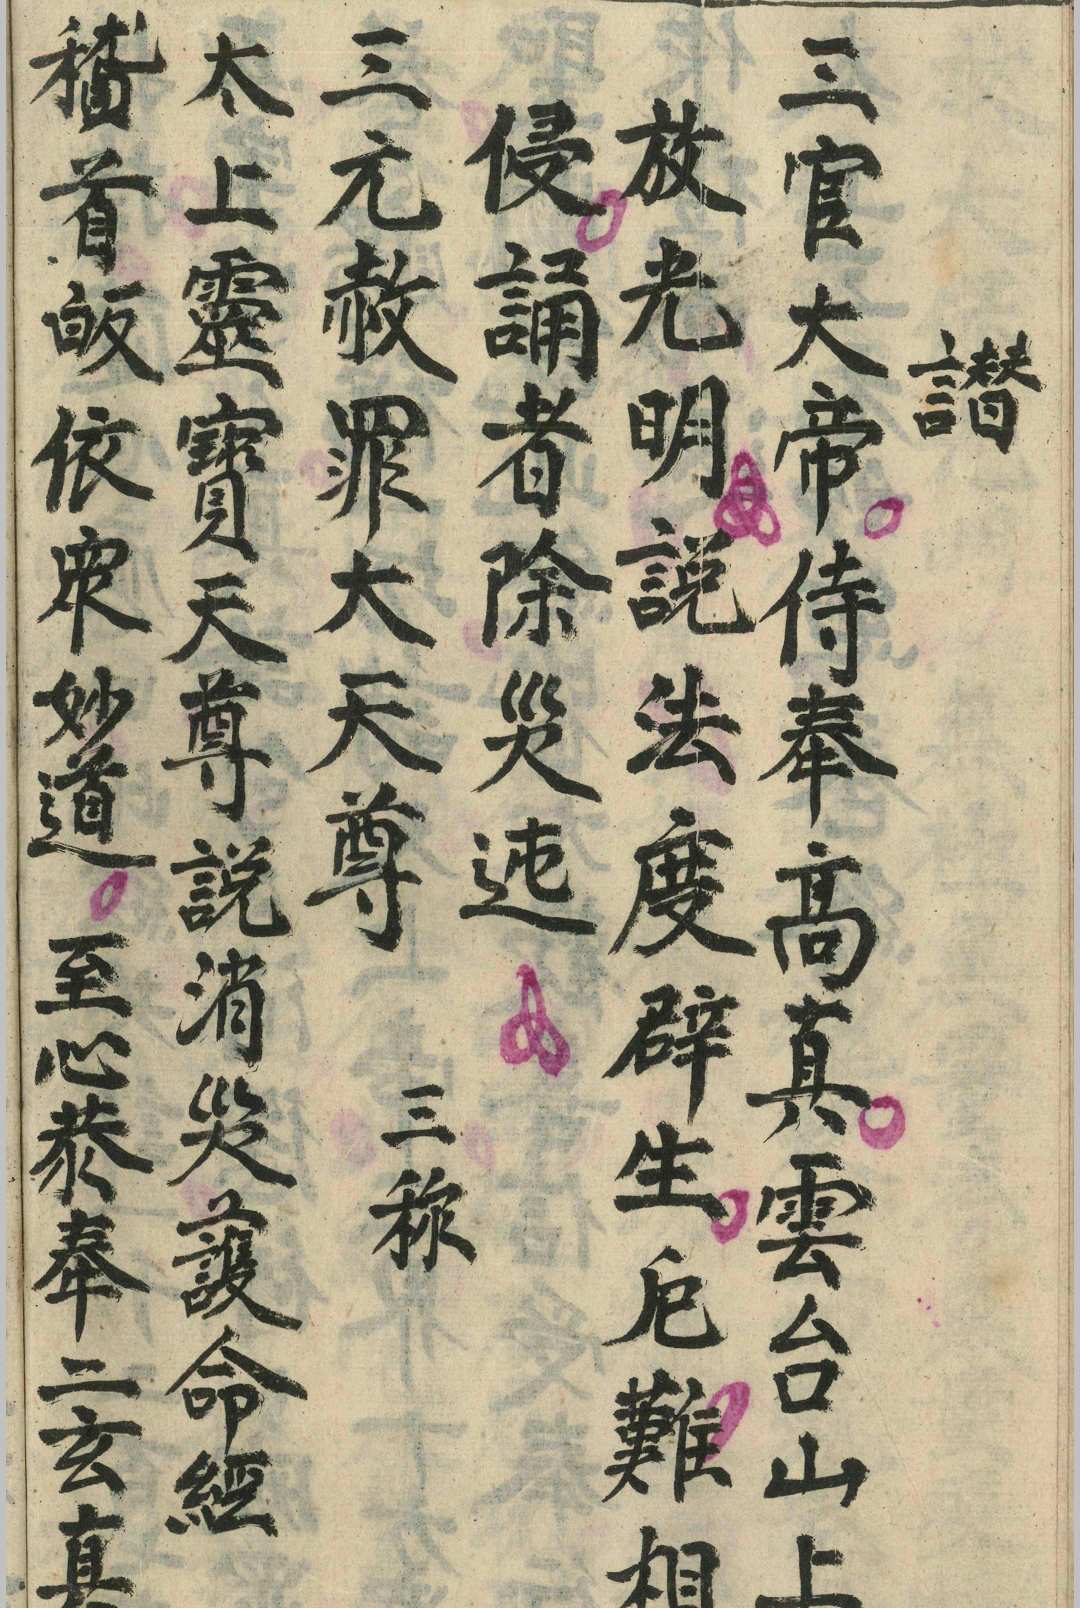 讃
三官大帝侍奉高真雲台山上
放光明説法度群生厄難相
侵誦者除災迍
三元赦罪大天尊 三称
太上靈寳天尊説消災護命經
稽首皈依衆妙道至心恭奉二玄真